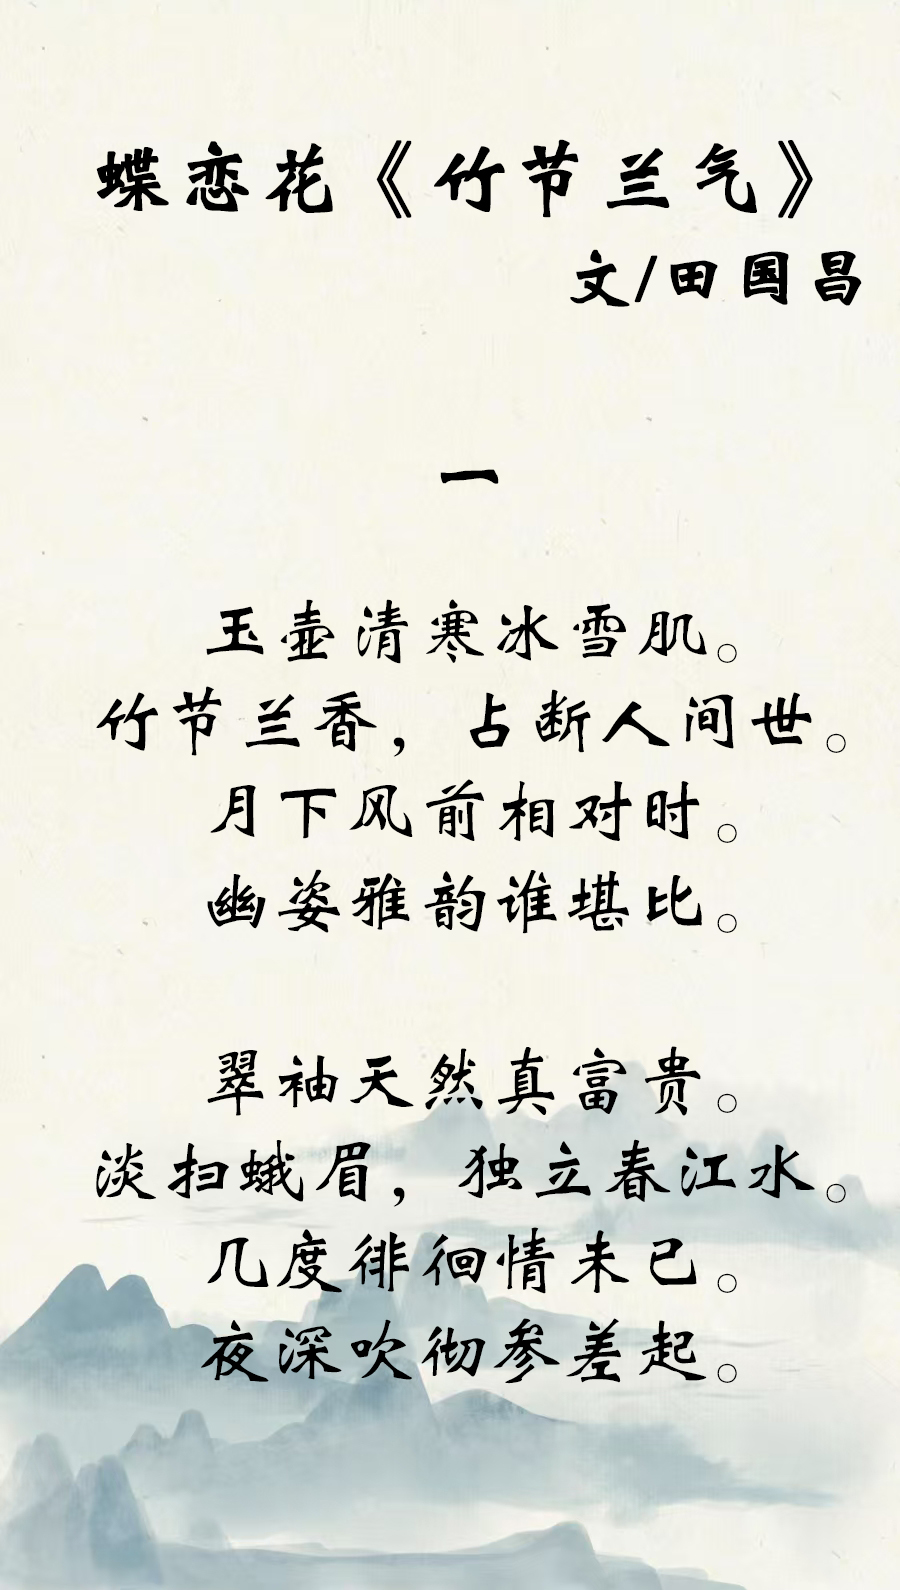 蝶恋花《竹节兰气》
文/田国昌
一
玉壶清寒冰雪肌。
竹节兰香，占断人间世。
月下风前相对时。
幽姿雅韵谁堪比。
翠袖天然真富贵。
淡扫蛾眉，独立春江水。
几度徘徊情未已。
夜深吹彻参差起。